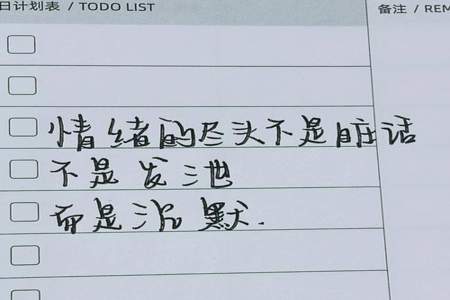 日计划表 / TODO LIST
备注 / REM
情绪的尽头不是脏话
不是发泄
而是沉默.